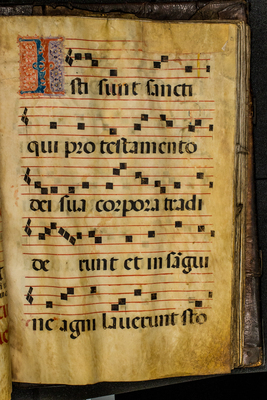 Isti sunt sancti
qui pro testamento
dei sua corpora tradi
de runt et in sāgui
ne agni lauerunt sto